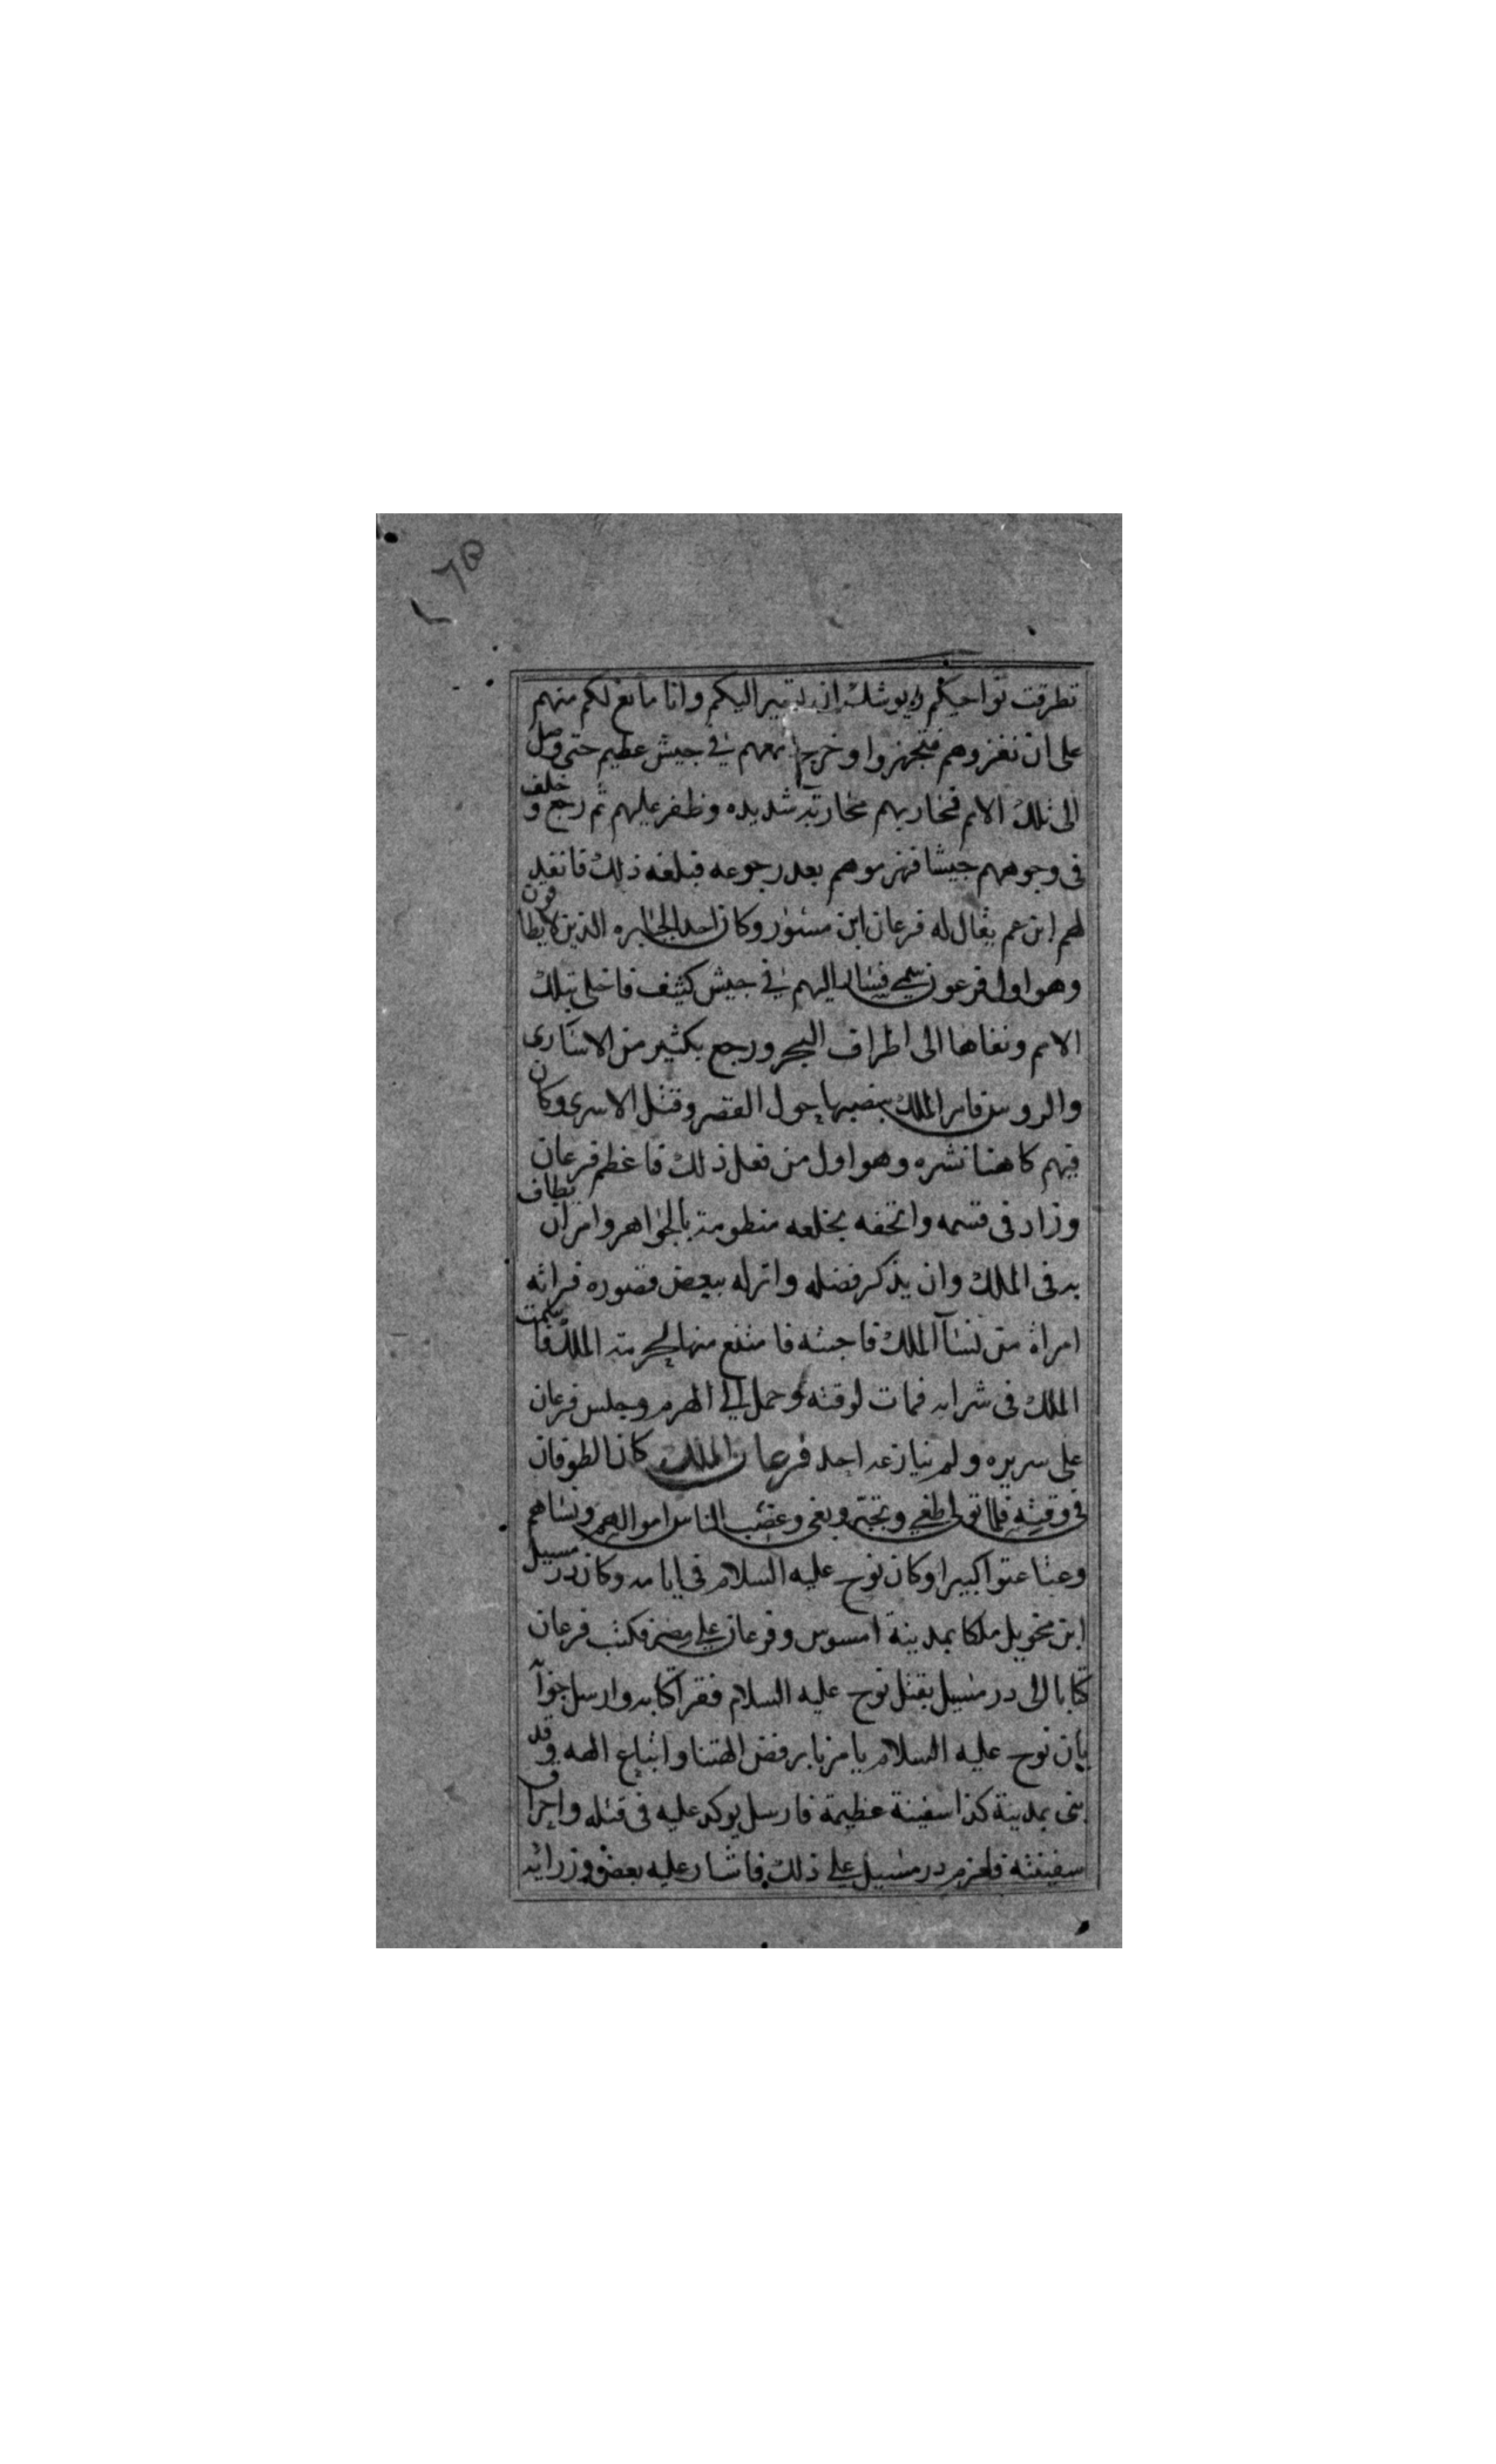 ٦٥
تطرقت نواحيكم ويوشك ان تسير اليكم وانا مانع لكم منهم
على ان نغزوهم فتجهزوا وخرج معهم في جيش عظيم حتى وصل
الى تلك الامم فحاربهم محاربة شديده وظفر عليهم ثم رجع وخلف
فى وجوههم جيشا فهزموهم بعد رجوعه فبلغه ذلك فانفد
لهم ابن عم يقال له فرعان ابن مسور وكان احد الجبابره الذين لا يطاقون
وهو اول فرعون سمي فسار اليهم في جيش كثيف فاخلى تلك
الامم ونفاها الى اطراف البحر ورجع بكثير من الاسارى
والروس فامر الملك بنصبها حول القصر وقتل الاسرى وكان
فيهم كاهنا نشره وهو اول من فعل ذلك فاعظم فرعان
وزاد فى قسمه واتحفه بخلعه منظومة بالجواهر وامر ان يطاف
به فى الملك وان يذكر فضله وانزله ببعض قصوره فراته
امراة من نسآ الملك فاحبته فامتنع منها لحرمة الملك فسمت
الملك فى شرابه فمات لوقته وحمل الي الهرم وجلس فرعان
على سريره ولم ينازعه احد فرعان الملك كان الطوفان
فى وقته فلما تولى طغي وتجبر وبغى وغصب الناس اموالهم ونساهم
وعتا عتوا كبيرا وكان نوح عليه السلام فى ايامه وكان درمسيل
ابن محويل ملكا بمدينة امسوس وفرعان علي مصر فكتب فرعان
كتابا الى درمسيل بقتل نوح عليه السلام فقرا كتابه وارسل جوآبه
بان نوح عليه السلام يامرنا برفض الهتنا واتباع الهه وقد
بنى بمدينة كذا سفينة عظيمة فارسل يوكد عليه فى قتله واحراق
سفينته فلعزم درمسيل علي ذلك فاشار عليه بعض وزرائه